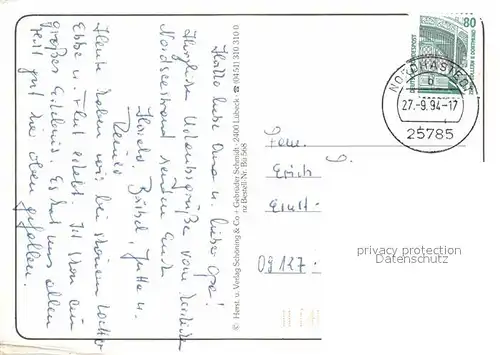 Hallo liebe Oma u. lieber Opa!
Herzliche Urlaubsgrüße vom herrlichen
Nordseestrand senden Euch
Deine
Harald, Bärbel, Jutta u.
Heute haben wir bei schönem Wetter
Ebbe u. Flut erlebt. Ist schon ein
großes Erlebnis. Es hat uns allen
sehr gut hier oben gefallen.
© Horst. u. Verlag Schöning & Co + Gebrüder Schmidt · 2400 Lübeck · ☎ (0451) 310 310 0
nz Bestell-Nr. Bü 568
80
DEUTSCHE BUNDESPOST
DORTMUND
NORDHASTEDT
b
27.-9.94-17
25785
Fam.
Erich
Ernst-
09127
privacy protection
Datenschutz